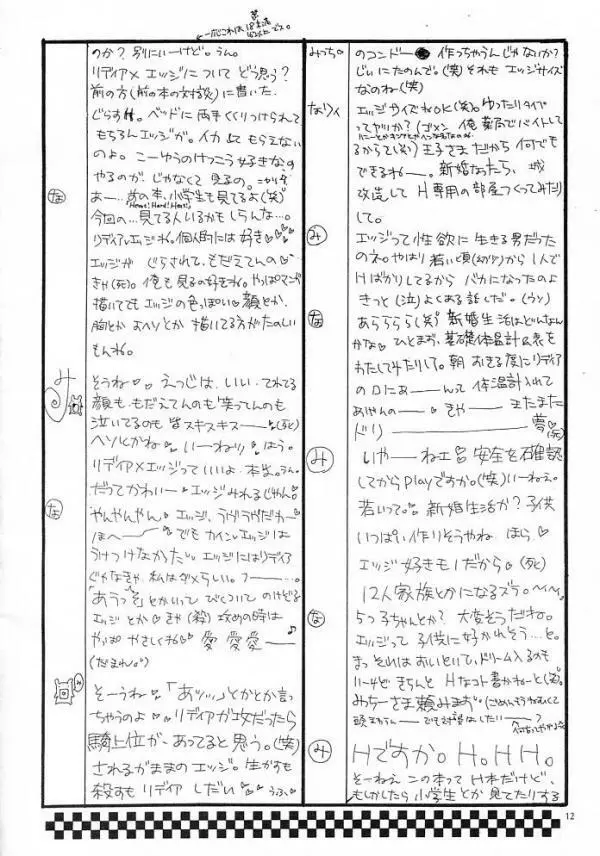 一応これは18才未満
禁止本です。
のか？別にいーけど。うん。
リディア×エッジについて どう思う？
前の方(前の本の対談)に書いた、
じらすH。ベッドに両手くくりつけられて
もちろんエッジが。イカせてもらえない
のよ。こーゆうのけっこう好きなの
やるのが、じゃなくて 見るの。
な
あー…前の本、小学生も見てるよ(笑)
今回の…見てる人いるかもしらんな…。
リディア×エッジね。個人的には好き♡
エッジが じらされて、もだえてんの
きゃ(死)。俺も見るの好きね。やっぱマンガ
描いてても エッジの色っぽい顔とか、
胸とかおヘソとか 描いてる方がたのしい
もんね。
み
そうね♡ えっじは、いい。てれてる
顔も、もだえてんのも笑ってんのも
泣いてるのも 皆スキスキスー(死)
ヘソとかね♡ いーねっ♡ ほう。
リディア×エッジっていいよ、本当。うん。
だってかわいー エッジみれるじゃん。
な
やんやんやん♡ エッジ、
ほへー でもカイン×エッジは
うけつけなかったし、エッジにはリディア
じゃなきゃ 私はダメらしい。フー…。
「あうっ」とかいって びくついて のけぞる
エッジとか♡ きゃ(殺) 攻めの時は
やっぱ やさしくね♡ 愛 愛 愛ー♪
(だまれ。)
み
そーうね♡「あッッ」とかとか言っ
ちゃうのよ♡ リディアが攻だったら
騎上位が、あってると思う。(笑)
されるがままのエッジ。生かすも
殺すも リディア しだい♡ うふ
みっち。
のコンドー● 作っちゃうんじゃないか？
じいにたのんで。(笑)それも エッジサイズ
なのね(笑)
なりィ
エッジサイズねOK(笑)。ゆったりタイプ
ってヤツか？(ゴメン 俺 薬局でバイトして
るからて(笑)) 王子さまだから 何でも
できるねー。新婚なったら、城
改造して H専用の部屋つくってみたり
して。
み
エッジって性欲に 生きる男だった
のネ。
きっと(泣)よくある話しだ。(ウソ)
な
あらららら(笑)新婚生活はどんなん
かな♡ ひとまず、基礎体温計&表を
わたしてみたりして。朝 おきる度にリディア
の口にあーんって 体温計入れて
あげんのー♡ きゃー またまた
ドリー 夢(死)
み
いやーねェ 安全を確認
してからPlayですか。(笑)いーねぇ。
若いって。新婚生活か？子供
いっぱい、作りそうやね ほら♡
エッジ好きもノだから♡(死)
12人家族とかになるズラ。へへへ。
な
5つ子ちゃんとか？ 大変そうだねェ。
エッジって 子供に好かれそう…と。
ま、それはおいといて、ドリーム入るのも
いーけど きちんと Hなコト書かねーと(笑)。
みちーさま頼みます。
み
Hですか。H。HH。
そーねえ この本ってH本だけど、
もしかしたら小学生とか見てたりする
12